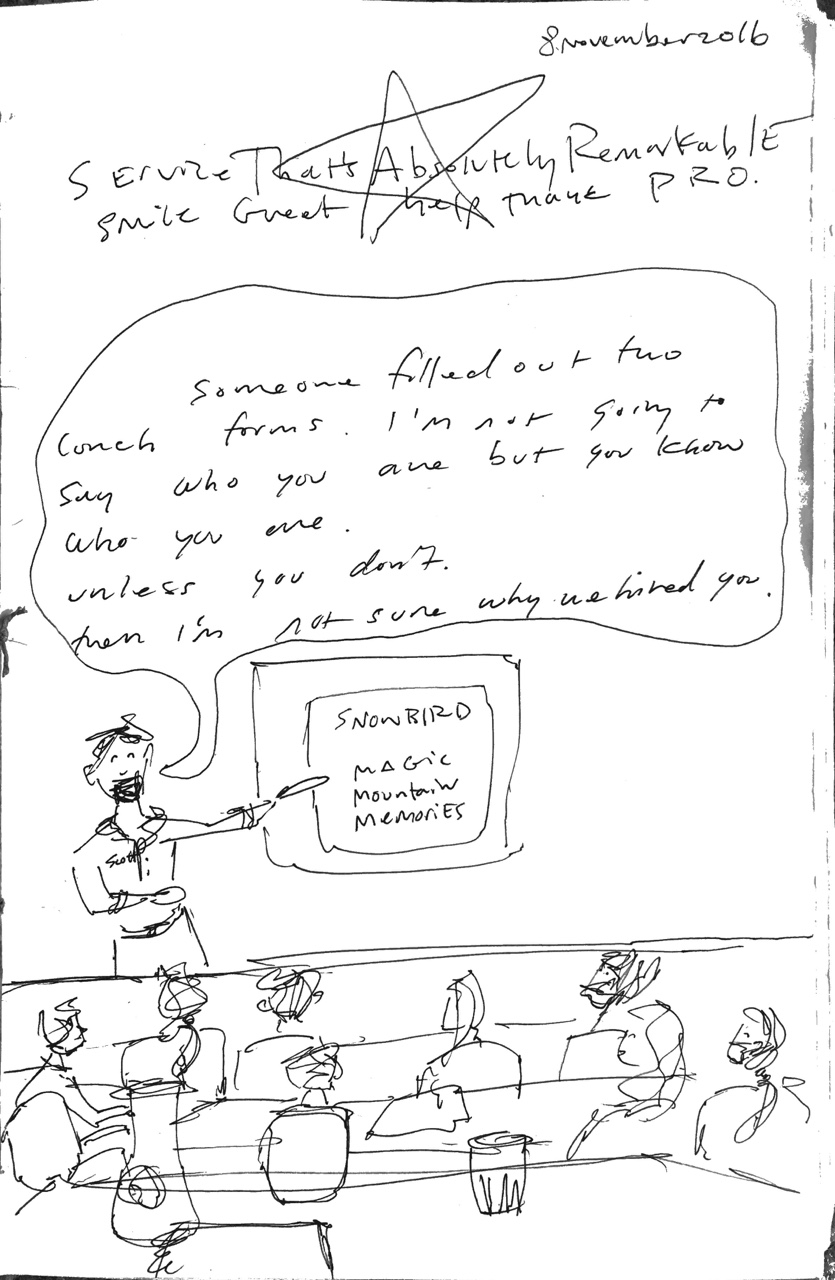 8 november 2016
Service That's Absolutely Remarkable
Smile Greet help thank PRO.
Someone filled out two
couch forms. I'm not going to
say who you are but you know
who you are.
unless you don't.
then I'm not sure why we hired you.
SNOWBIRD
MAGIC
Mountain
MEMORIES
Scott